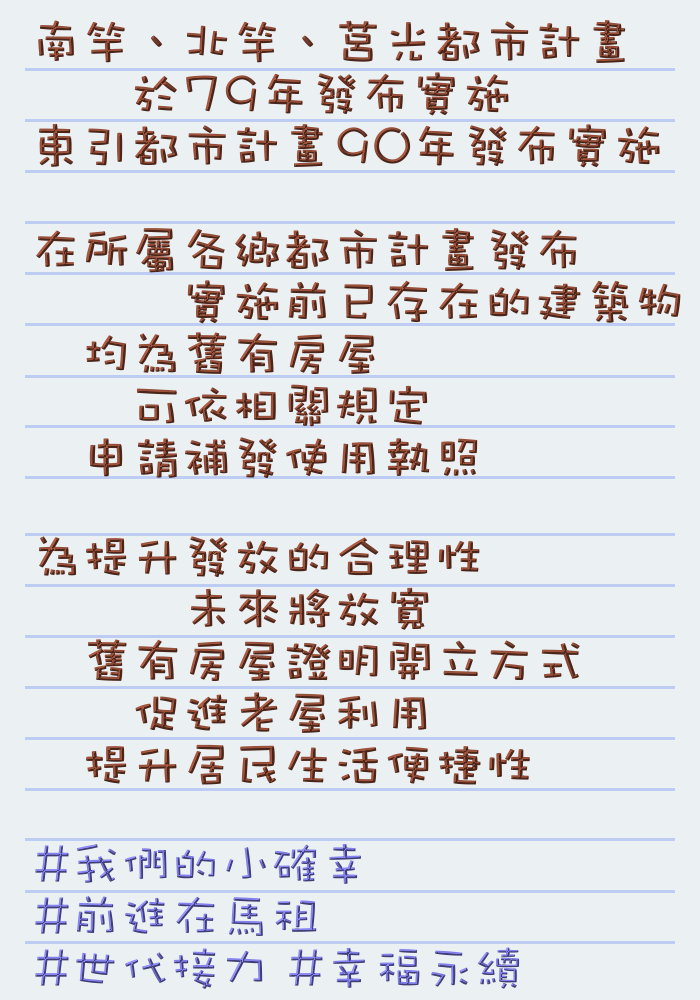 南竿、北竿、莒光都市計畫
於79年發布實施
東引都市計畫90年發布實施
在所屬各鄉都市計畫發布
實施前已存在的建築物
均為舊有房屋
可依相關規定
申請補發使用執照
為提升發放的合理性
未來將放寬
舊有房屋證明開立方式
促進老屋利用
提升居民生活便捷性
#我們的小確幸
#前進在馬祖
#世代接力 #幸福永續